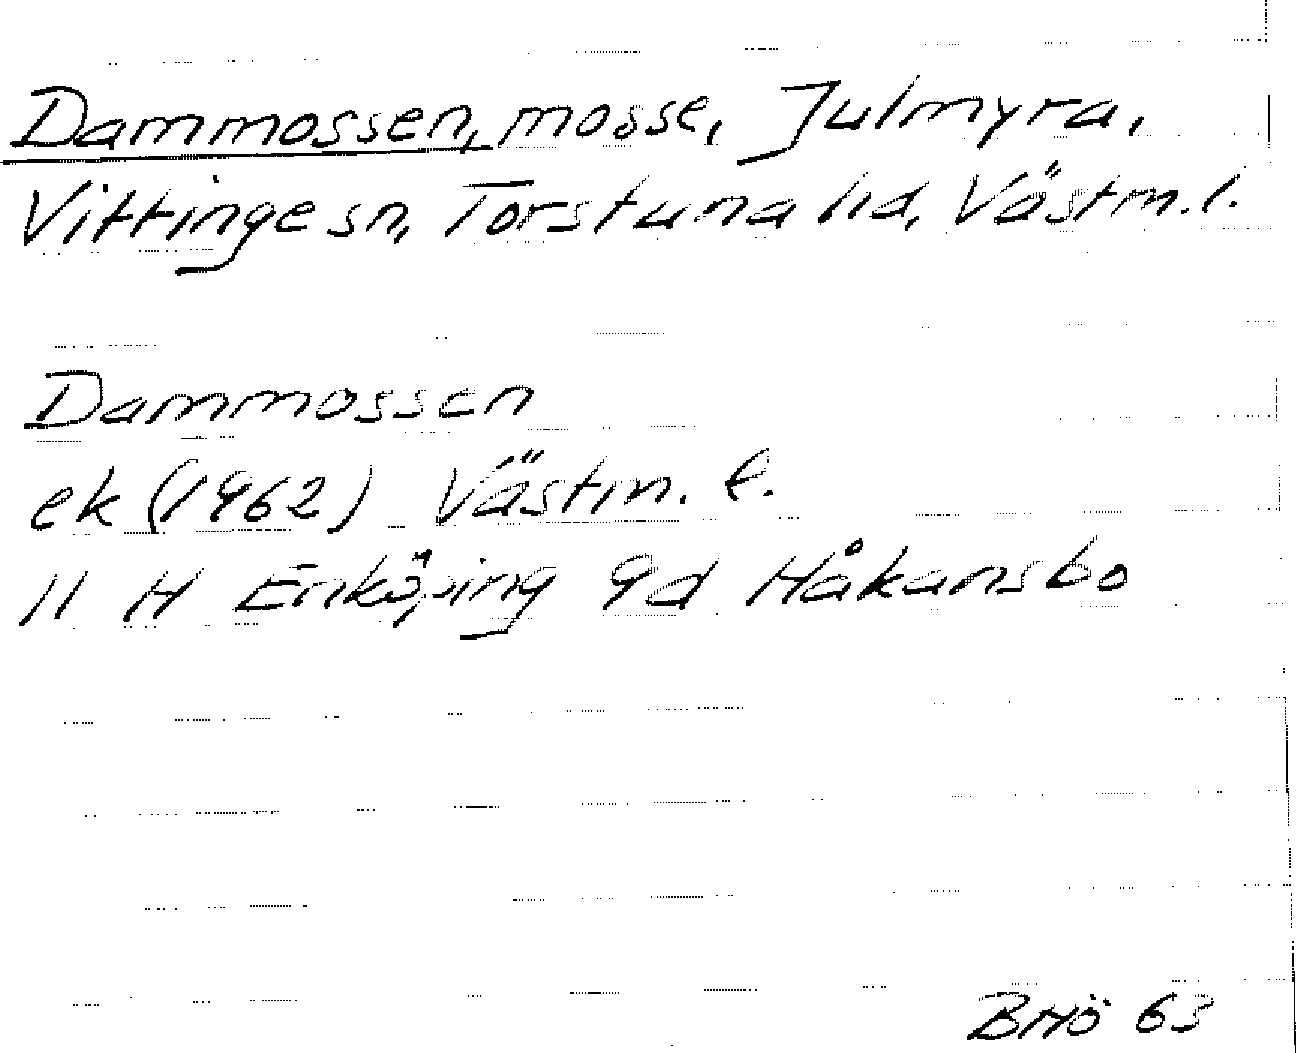 Dammossen, mosse, Julmyra,
Vittinge sn, Torstuna hd, Västm. l.
Dammossen
ek (1962) Västm. l.
11 H Enköping 9d Håkansbo
BHö 63